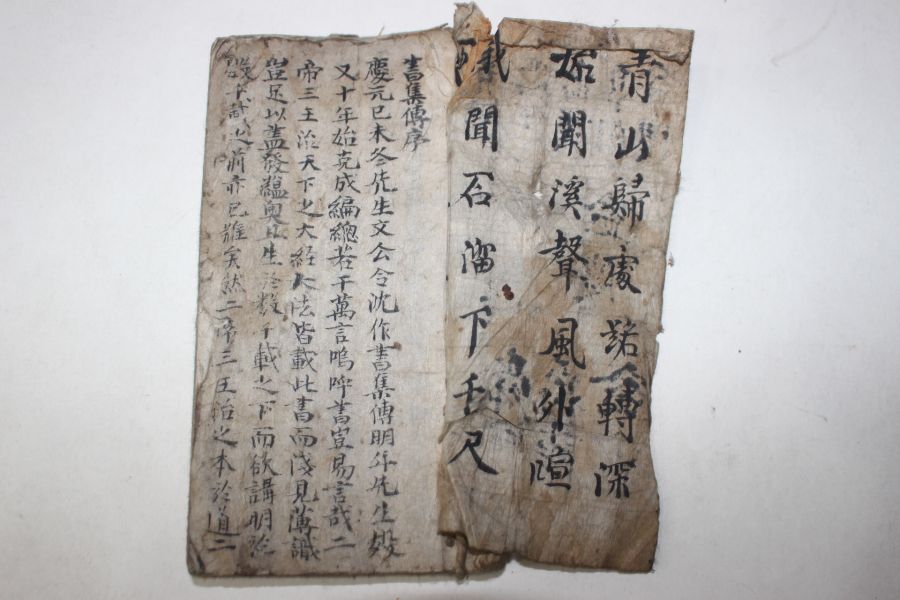 青山歸處路轉深
始聞溪聲風外喧
我聞石溜下千尺
書集傳序
慶元己未冬先生文公令沈作書集傳明年先生歿
又十年始克成編總若干萬言嗚呼書豈易言哉二
帝三王治天下之大經大法皆載此書而淺見薄識
豈足以盡發蘊奧且生於數千載之下而欲講明於
數千載之前亦已難矣然二帝三王治之本於道二